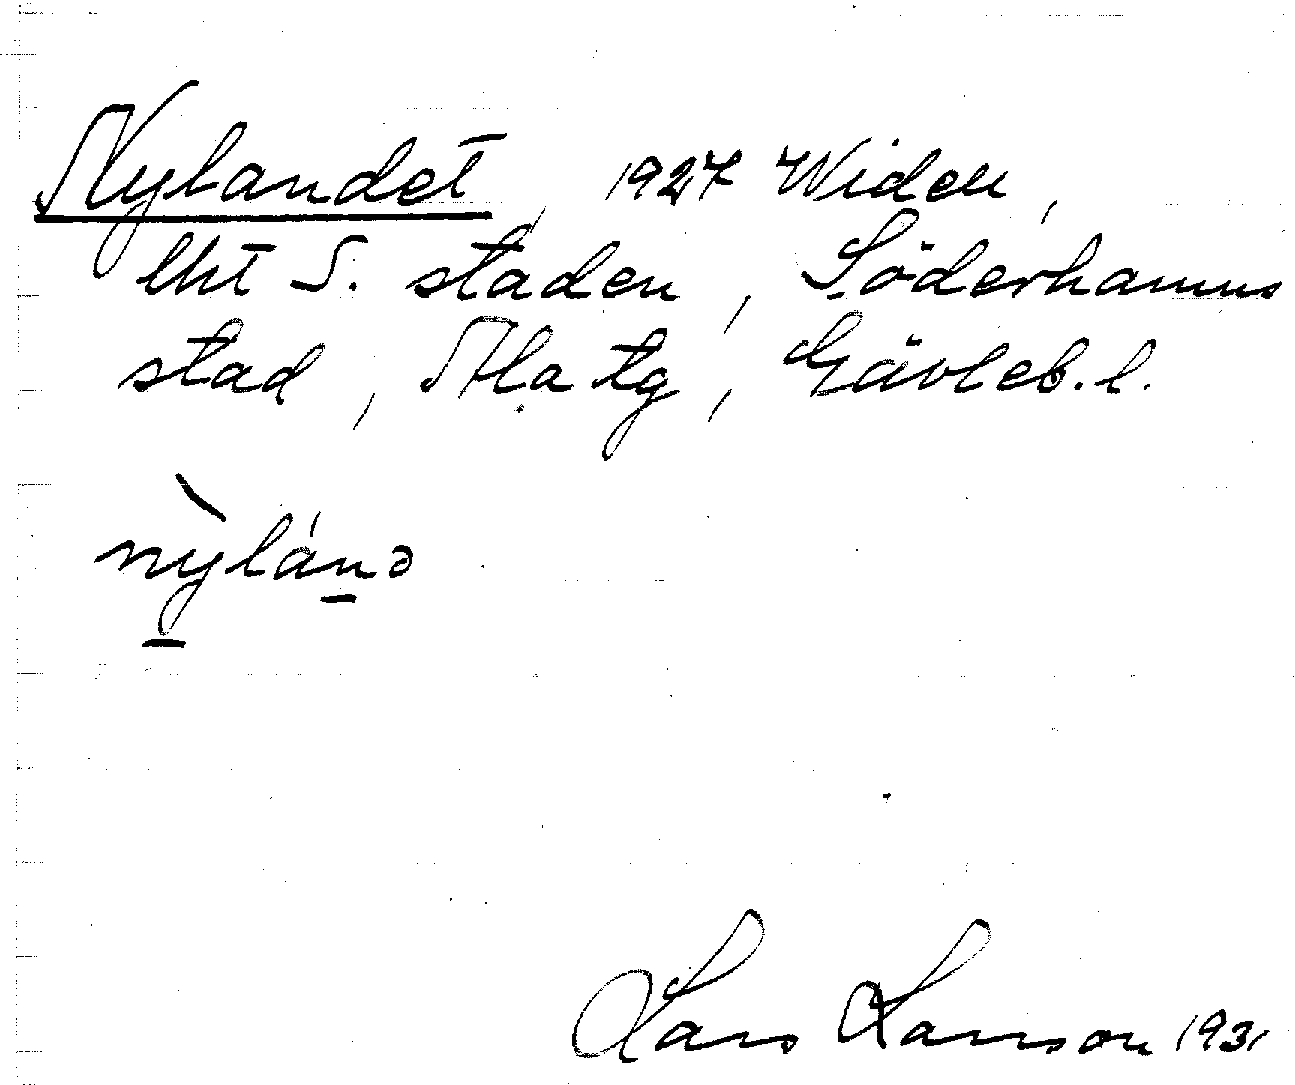 Nylandet, 1927 Widell,
lht S. staden, Söderhamns
stad, Ala tg, Gävleb. l.
nỳlánə
Lars Larsson 1931